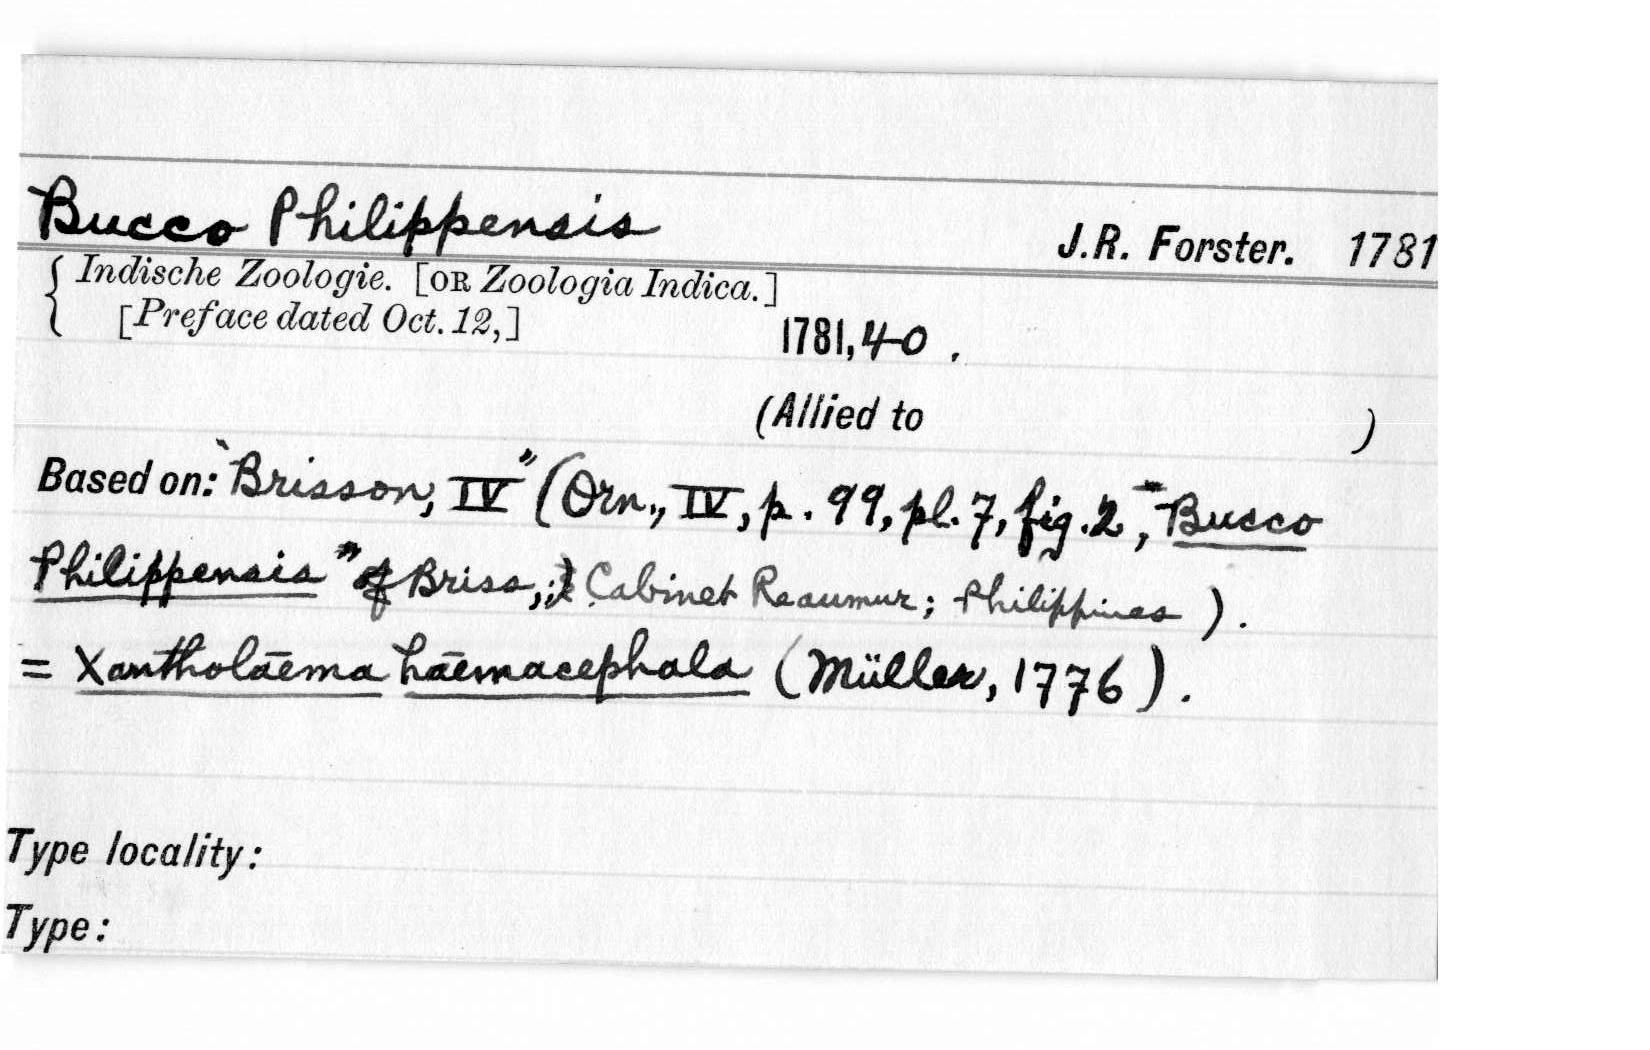 Bucco Philippensis J.R. Forster. 1781
{ Indische Zoologie. [OR Zoologia Indica.]
[Preface dated Oct. 12,] 1781, 40.
(Allied to )
Based on: "Brisson, IV" (Orn., IV, p. 99, pl. 7, fig. 2, "Bucco
Philippensis" of Briss.; Cabinet Reaumur; Philippines ).
= Xantholaema haemacephala (Müller, 1776).
Type locality:
Type: